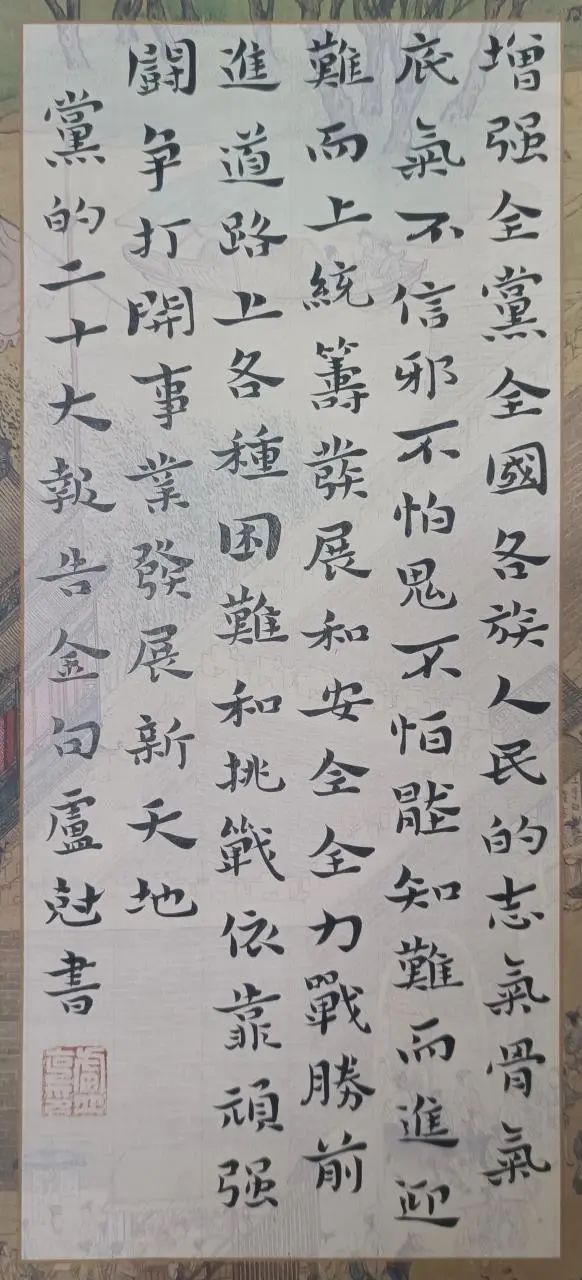 增强全黨全國各族人民的志氣骨氣
底氣不信邪不怕鬼不怕壓知難而進迎
難而上統籌發展和安全全力戰勝前
進道路上各種困難和挑戰依靠頑强
鬭争打開事業發展新天地
黨的二十大報告金句盧尅書